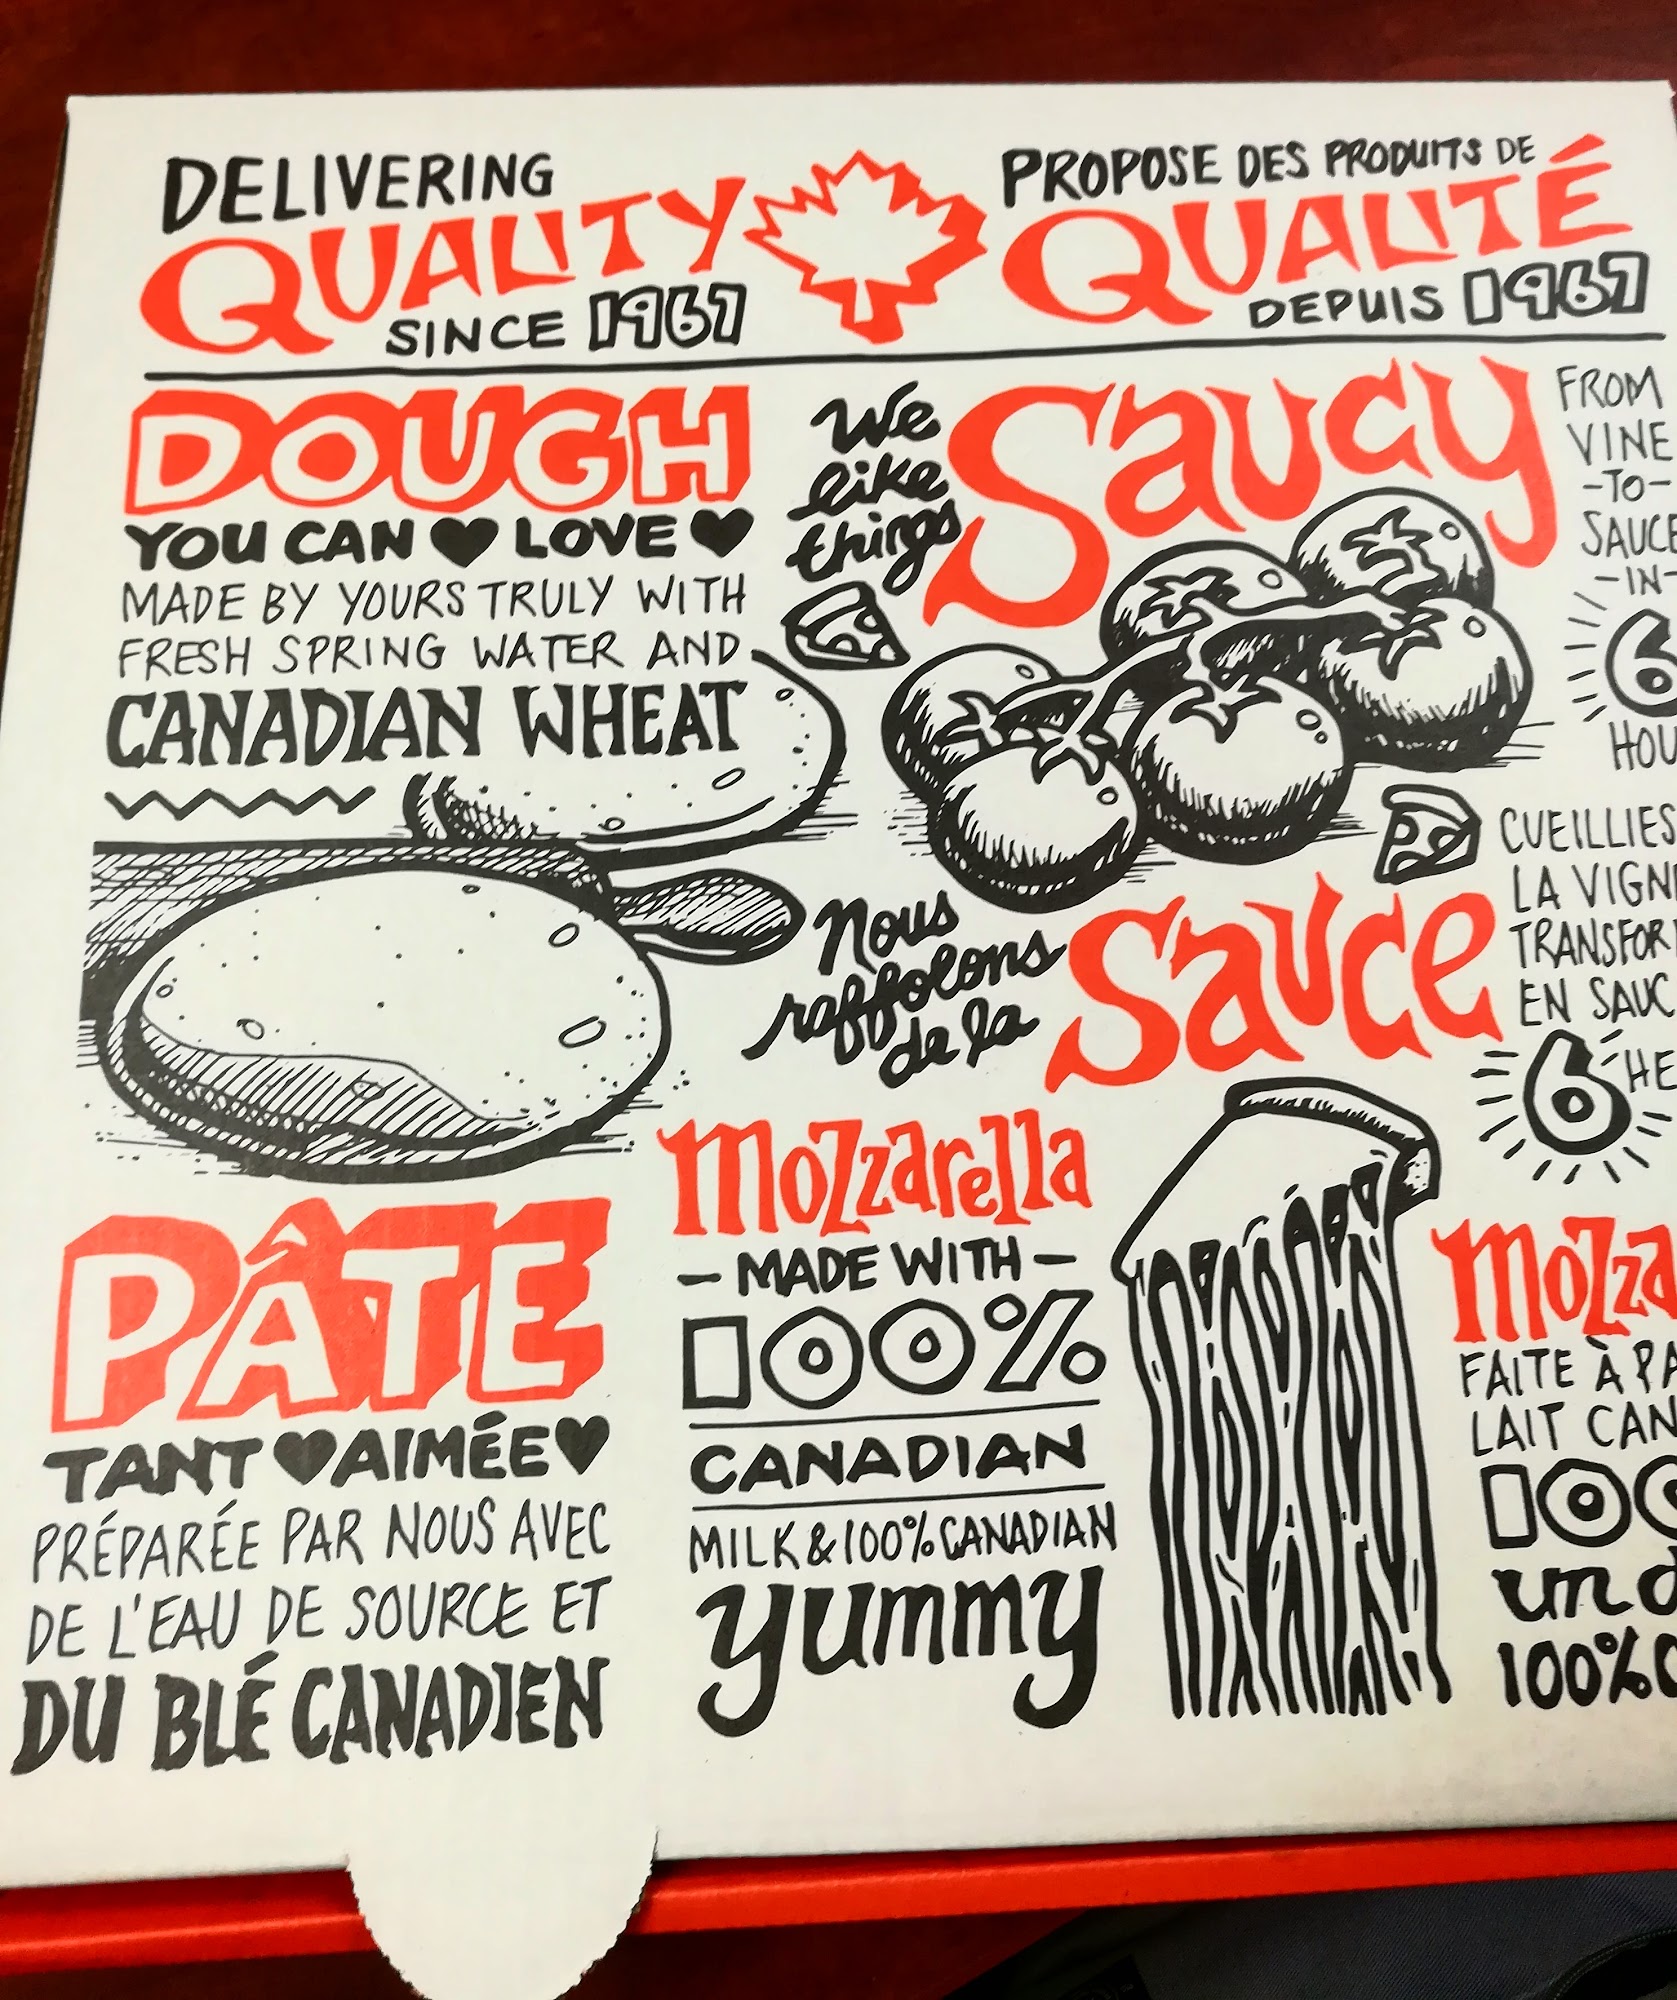 DELIVERING
QUALITY
SINCE 1967
PROPOSE DES PRODUITS DE
QUALITÉ
DEPUIS 1967
DOUGH
YOU CAN LOVE
MADE BY YOURS TRULY WITH
FRESH SPRING WATER AND
CANADIAN WHEAT
We
like
things
Saucy
FROM
VINE
-TO-
SAUCE
-IN-
6
HOU
Nous
raffolons
de la
Sauce
CUEILLIES
LA VIGN
TRANSFOR
EN SAUC
6 HE
PÂTE
TANT AIMÉE
PRÉPARÉE PAR NOUS AVEC
DE L'EAU DE SOURCE ET
DU BLÉ CANADIEN
Mozzarella
- MADE WITH -
100%
CANADIAN
MILK & 100% CANADIAN
yummy
Mozza
FAITE À PA
LAIT CAN
100
un d
100% C